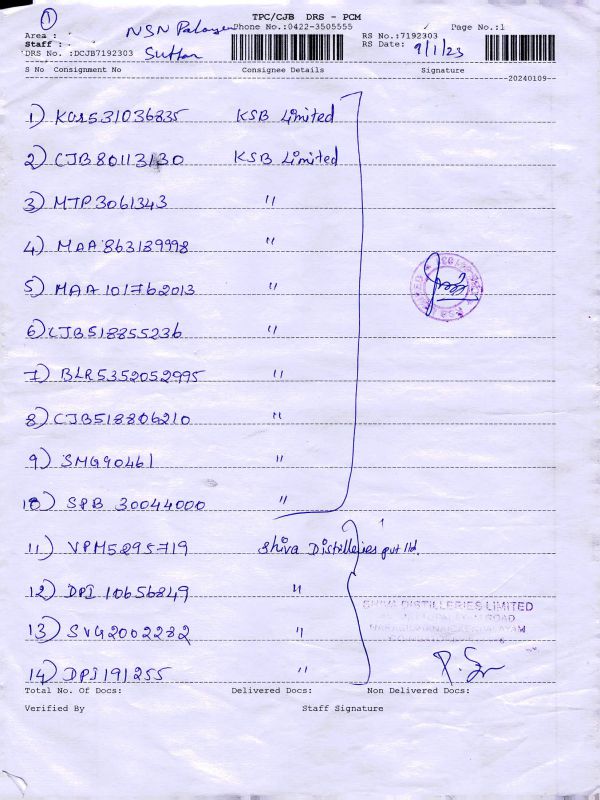 1
TPC/CJB DRS - PCM
NSN Palayam
Phone No.:0422-3505555
Page No.:1
Area :
RS No.:7192303
Staff :
RS Date: 9/1/23
DRS No. :DCJB7192303
S No Consignment No Consignee Details Signature
20240109
1) KOL531036835 KSB Limited
2) CJB80113130 KSB Limited
3) MTP3061343 "
4) MAA863139998 "
5) MAA101762013 "
6) CJB518855236 "
7) BLR5352052995 "
8) CJB518806210 "
9) SMG90461 "
10) SPB 30044000 "
11) VPM5295719 Shiva Distilleries pvt ltd.
12) DPI 10656849 "
SHIVA DISTILLERIES LIMITED
ROAD
13) SVG2002282 "
14) DPI191255 "
Total No. Of Docs: Delivered Docs: Non Delivered Docs:
Verified By Staff Signature